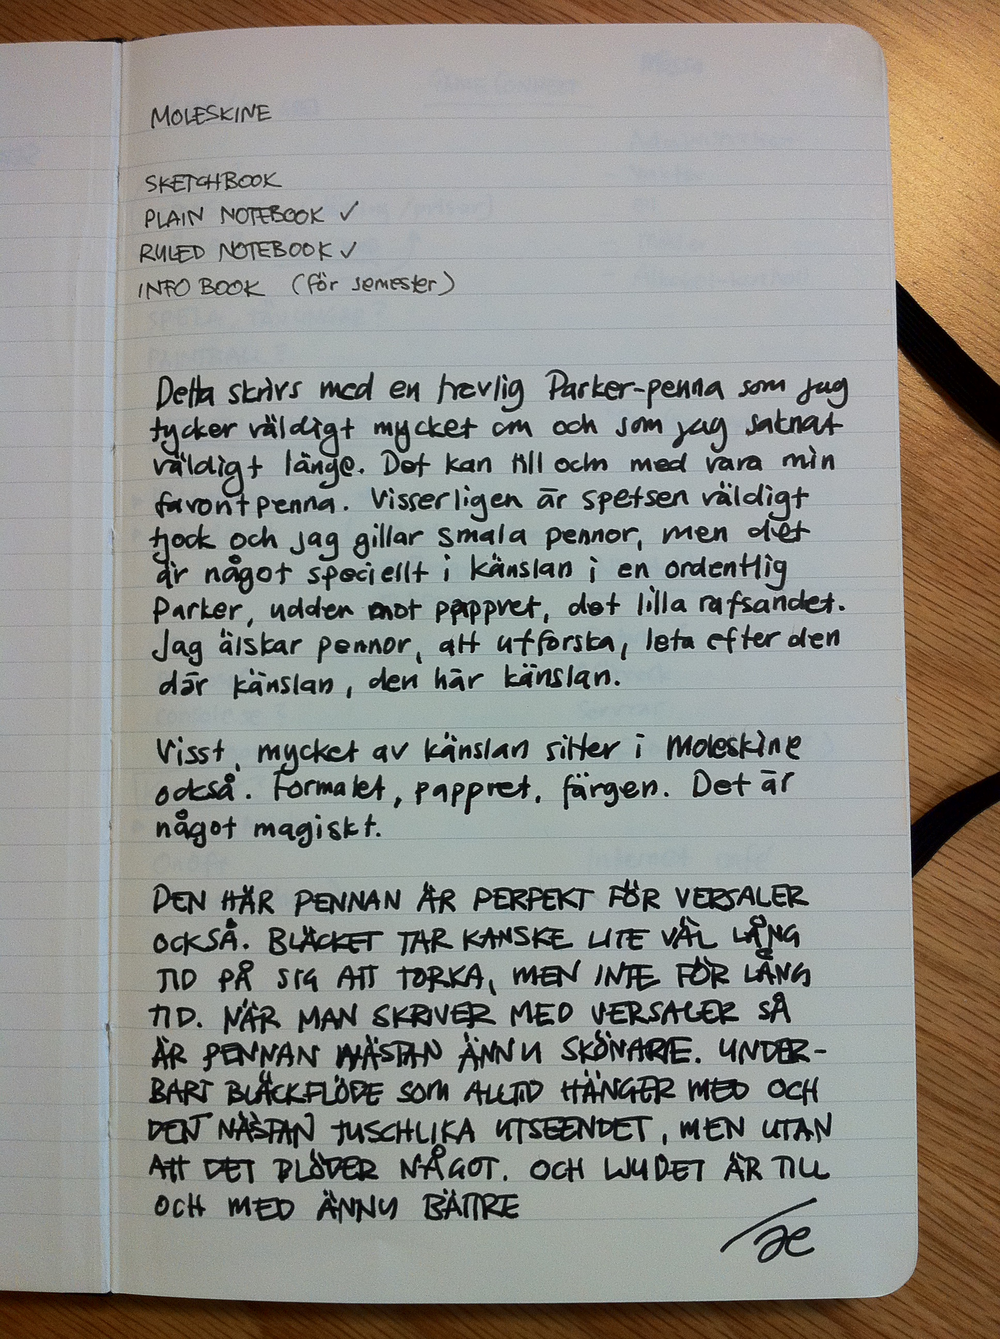 MOLESKINE
SKETCHBOOK
PLAIN NOTEBOOK ✓
RULED NOTEBOOK ✓
INFO BOOK (för semester)
Detta skrivs med en trevlig Parker-penna som jag
tycker väldigt mycket om och som jag saknat
väldigt länge. Det kan till och med vara min
favoritpenna. Visserligen är spetsen väldigt
tjock och jag gillar smala pennor, men det
är något speciellt i känslan i en ordentlig
Parker, udden mot pappret, det lilla rafsandet.
Jag älskar pennor, att utforska, leta efter den
där känslan, den här känslan.
Visst, mycket av känslan sitter i Moleskine
också. Formatet, pappret, färgen. Det är
något magiskt.
DEN HÄR PENNAN ÄR PERFEKT FÖR VERSALER
OCKSÅ. BLÄCKET TAR KANSKE LITE VÄL LÅNG
TID PÅ SIG ATT TORKA, MEN INTE FÖR LÅNG
TID. NÄR MAN SKRIVER MED VERSALER SÅ
ÄR PENNAN NÄSTAN ÄNNU SKÖNARE. UNDER-
BART BLÄCKFLÖDE SOM ALLTID HÄNGER MED OCH
DET NÄSTAN TUSCHLIKA UTSEENDET, MEN UTAN
ATT DET BLÖDER NÅGOT. OCH LJUDET ÄR TILL
OCH MED ÄNNU BÄTTRE